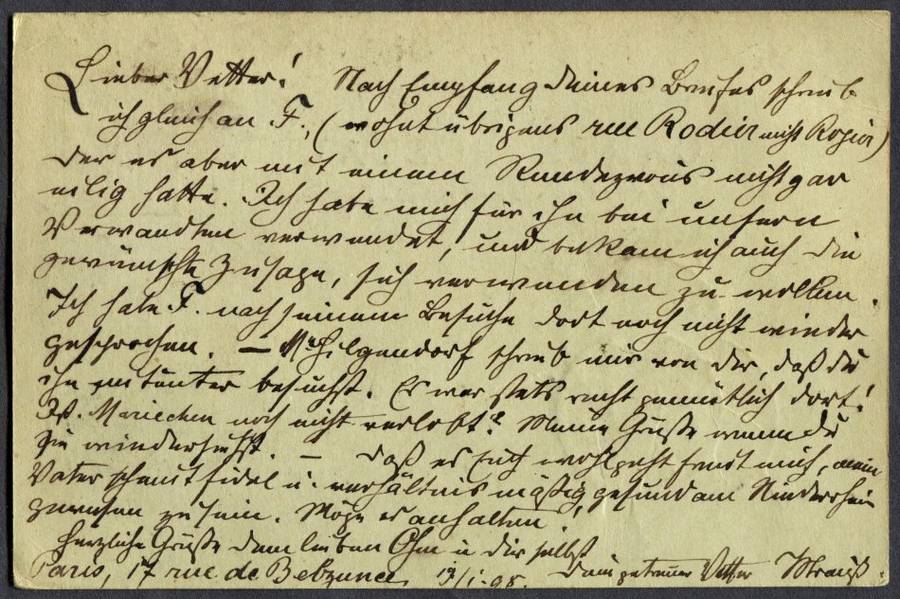 Lieber Vetter! Nach Empfang Deines Briefes schrieb
ich gleich an F., (wohnt übrigens rue Rodier nicht Rogier)
der es aber mit einem Rendezvous nicht gar
eilig hatte. Ich habe mich für ihn bei unsern
Verwandten verwendet, und bekam ich auch die
gewünschte Zusage, sich verwenden zu wollen.
Ich habe F. nach seinem Besuche dort noch nicht wieder
gesprochen. — Hilgendorf schrieb mir von Dir, daß Du
ihn mitunter besuchst. Es war stets recht gemütlich dort!
Ist Mariechen noch nicht verlobt? Meine Grüße wenn Du
sie wiedersiehst. — Daß es Euch wohl geht freut mich, mein
Vater scheint fidel u. verhältnismäßig gesund am Niederrhein
gewesen zu sein. Möge es anhalten.
Herzliche Grüße dem lieben Ohm u Dir selbst
Paris, 17 rue de Belzunce, 19/1.98. Dein getreuer Vetter